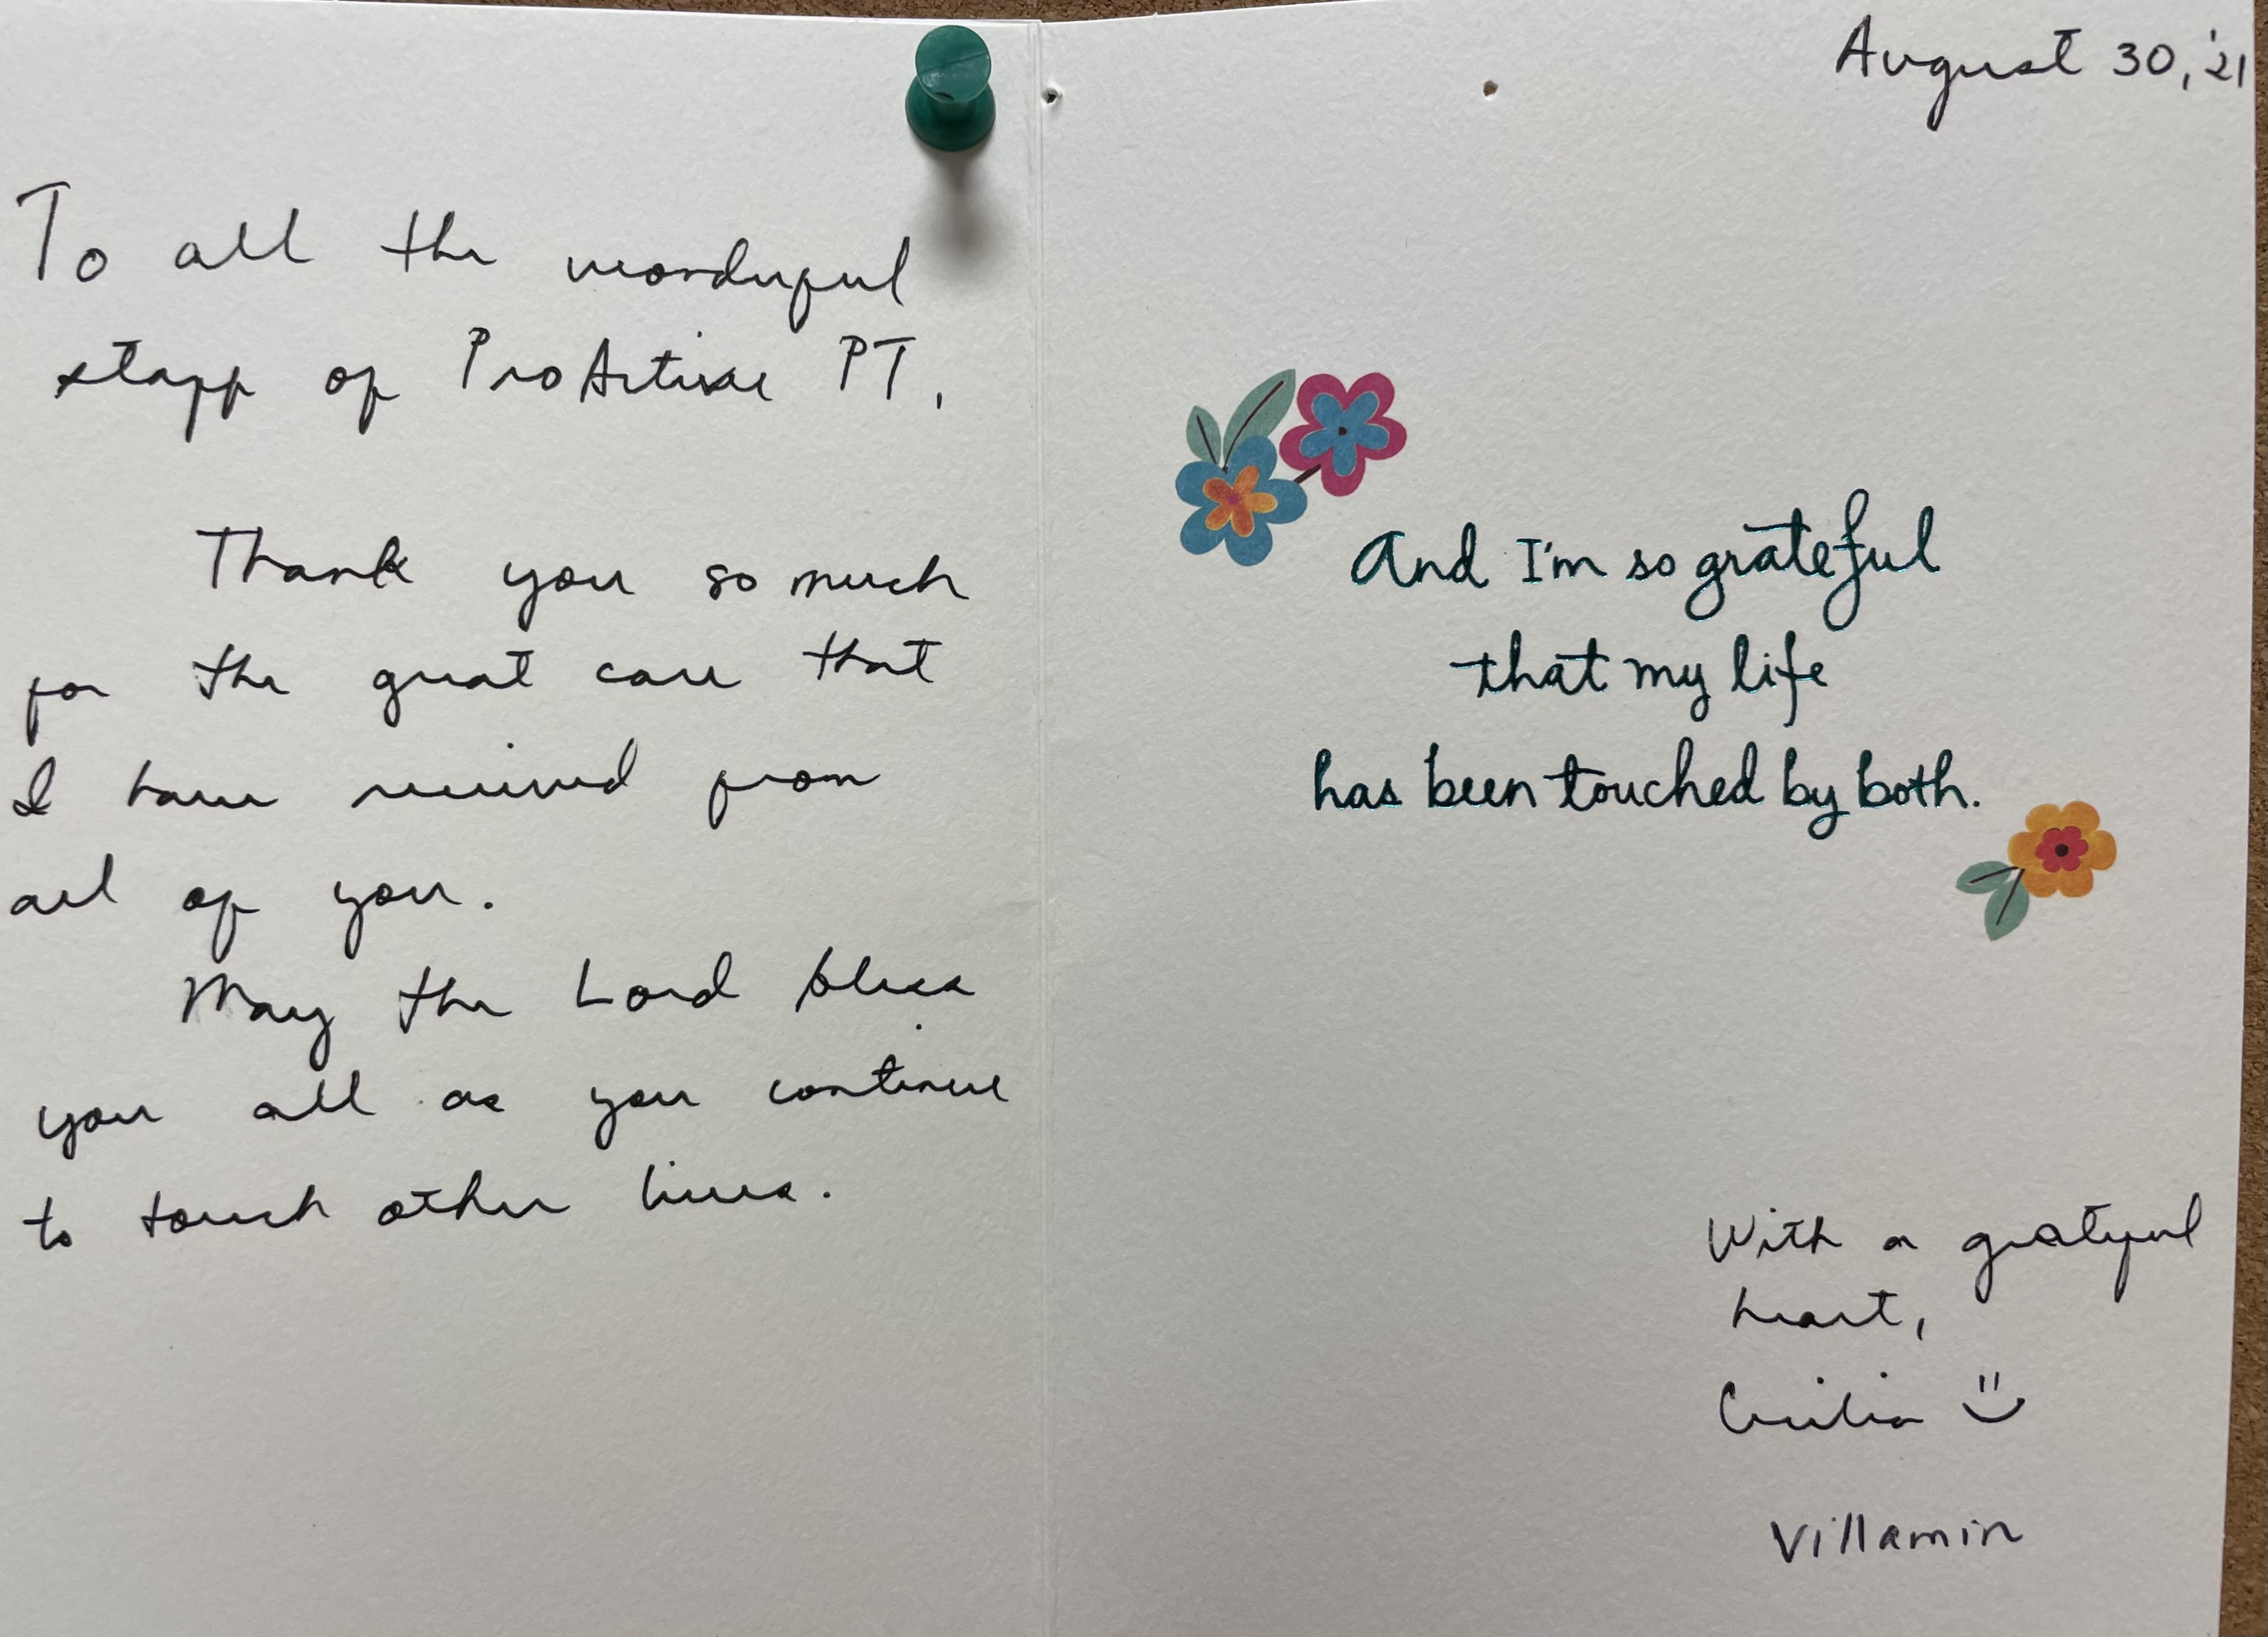 To all the wonderful
staff of ProActive PT,
Thank you so much
for the great care that
I have received from
all of you.
May the Lord bless
you all as you continue
to touch other lives.
August 30, '21
And I'm so grateful
that my life
has been touched by both.
With a grateful
heart,
Cecilia
Villamin